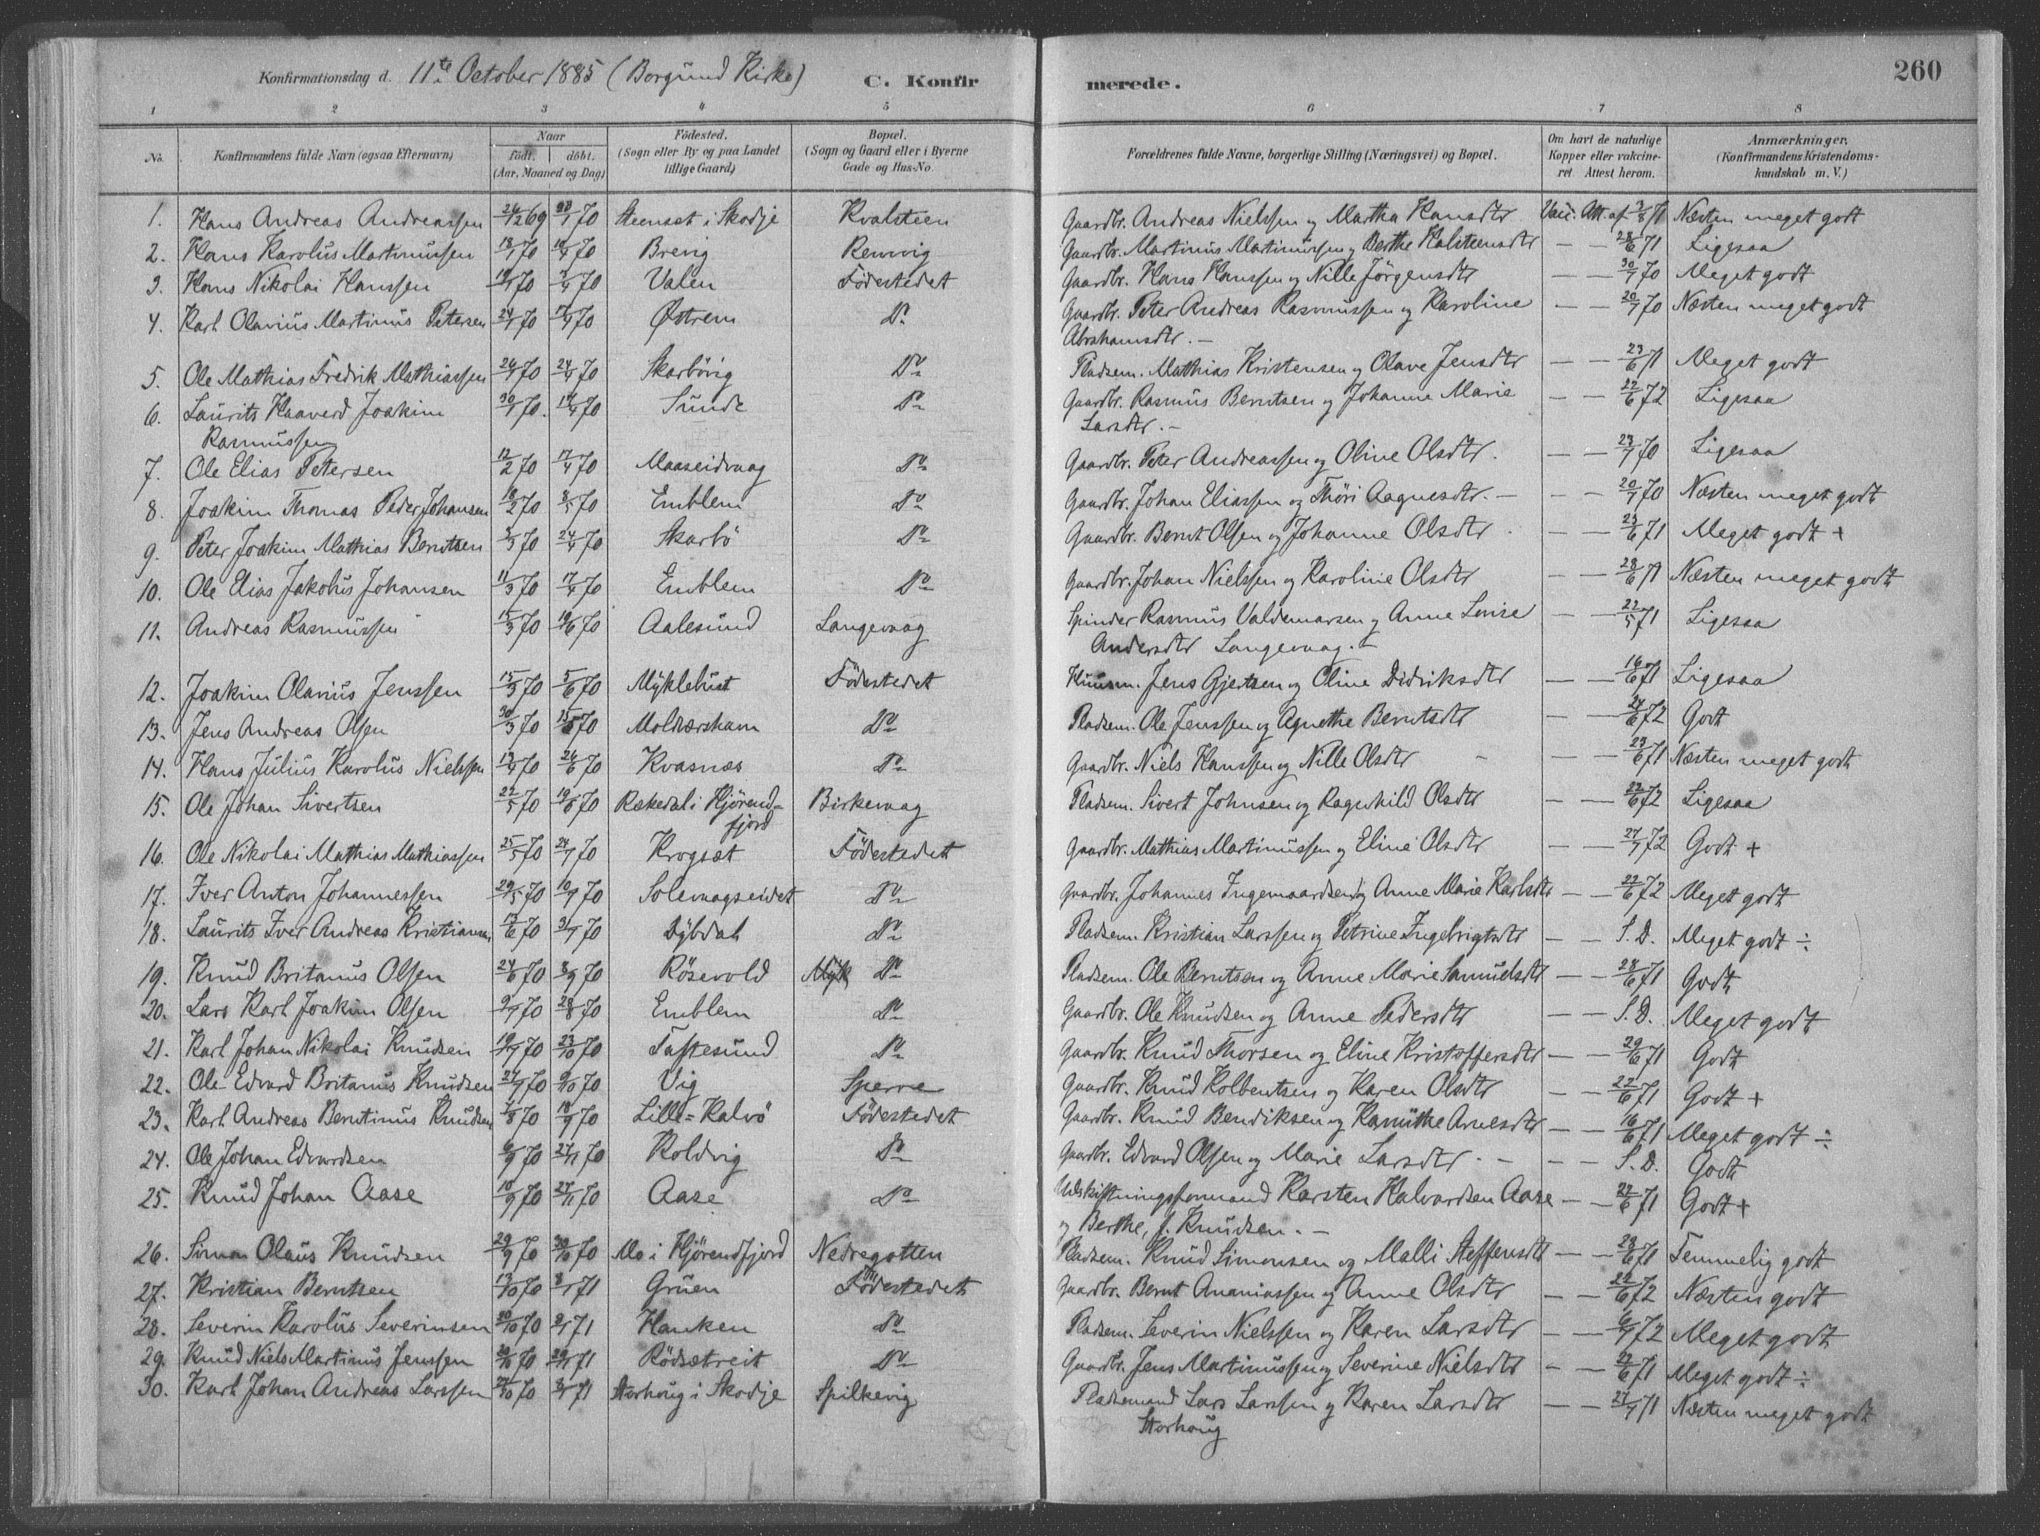 Konfirmationsdag d. 11te October 1885 (Borgund Kirke) C. Konfir merede. 260
1 2 3 4 5 6 7 8
No. Konfirmandens fulde Navn (ogsaa Efternavn) Naar født. døbt. (Aar, Maaned og Dag) Fødested. (Sogn eller By og paa Landet tillige Gaard) Bopæl. (Sogn og Gaard eller i Byerne Gade og Hus-No. Forældrenes fulde Navne, borgerlige Stilling (Næringsvei) og Bopæl. Om havt de naturlige Kopper eller vakcineret Attest herom. Anmærkninger. (Konfirmandens Kristendomskundskab m. V.)
1. Hans Andreas Andreassen 26/12 69 30/1 70 Steenset i Skodje Kvalsteen Gaardbr. Andreas Nielssen og Martha Hansdtr Vacc. Att. af 3/8 71 Næsten meget godt
2. Hans Karolus Martinussen 18/1 70 10/4 70 Brevig Remvig Gaardbr. Martinus Martinussen og Berthe Halsteensdtr — — 28/6 71 Ligesaa
3. Hans Nikolai Hanssen 19/1 70 3/4 70 Valen Fødestedet Gaardbr. Hans Hanssen og Nille Jørgensdtr — — 30/7 70 Meget godt
4. Karl Olavius Martinus Petersen 24/1 70 17/4 70 Østrem Do Gaardbr. Peter Andreas Rasmussen og Karoline — — 20/7 70 Næsten meget godt
Abrahamsdtr. —
5. Ole Mathias Fredrik Mathiassen 26/1 70 24/4 70 Skarbövig Do Pladsem. Mathias Kristensen og Olave Jensdtr — — 23/6 71 Meget godt
6. Laurits Haaverd Joakim 30/1 70. 17/4 70 Sunde Do Gaardbr. Rasmus Berntsen og Johanne Marie — — 22/6 72 Ligesaa
Rasmussen Larsdtr. —
7. Ole Elias Petersen 12/2 70 17/4 70 Maaseidvaag Do Gaardbr. Peter Andreassen og Oline Olsdtr. — — 23/7 70 Ligesaa
8. Joakim Thomas Peder Johansen 18/2 70 8/5 70 Emblem Do Gaardbr. Johan Eliassen og Thöri Aagnesdtr. — — 20/7 70 Næsten meget godt
9. Peter Joakim Mathias Berntsen 3/3 70 24/4 70 Skarbö Do Gaardbr. Bernt Olsen og Johanne Olsdtr — — 23/6 71 Meget godt +
10. Ole Elias Jakobus Johansen 11/3 70 17/4 70 Emblem Do Gaardbr. Johan Nielssen og Karoline Olsdtr — — 28/6 71 Næsten meget godt
11. Andreas Rasmussen 15/3 70 19/6 70 Aalesund Langevaag Spinder Rasmus Valdemarsen og Anne Lovise — — 22/5 71 Ligesaa
Andersdtr Langevaag. —
12. Joakim Olavius Jenssen 15/3 70 5/6 70 Myklebust Fødestedet Huusm. Jens Gjertsen og Oline Didriksdtr — — 16/6 71 Ligesaa
13. Jens Andreas Olsen 30/3 70 15/5 70 Molværsham Do Pladsem. Ole Jenssen og Agnethe Berntsdtr — — 24/6 72 Godt
14. Hans Julius Karolus Nielssen 13/4 70 26/6 70 Kvasnes Do Gaardbr. Niels Hanssen og Nille Olsdtr — — 23/6 71 Næsten meget godt
15. Ole Johan Sivertsen 22/5 70 19/6 70 Rekedal i Hjørend= Birkevaag Pladsem. Sivert Johnsen og Ragnhild Olsdtr — — 22/6 72 Ligesaa
fjord
16. Ole Nikolai Mathias Mathiassen 25/5 70 24/7 70 Krogsæt Fødestedet Gaardbr. Mathias Martinussen og Eline Olsdtr — — 27/7 72 Godt +
17. Iver Anton Johannessen 29/5 70 10/7 70 Solevaagseidet Do Gaardbr. Johannes Ingemaardsen og Anne Marie Karlsdtr — — 22/6 72 Meget godt
18. Laurits Iver Andreas Kristiansen 17/6 70 31/7 70 Dybdal Do Pladsem. Kristian Larssen og Petrine Ingebrigtsdtr — — S.D. Meget godt ÷
19. Knud Britanus Olsen 24/6 70 8/9 70 Rösevold Myk Do Pladsem. Ole Berntsen og Anne Marie Samuelsdtr — — 28/6 71 Godt
20. Lars Karl Joakim Olsen 9/7 70 28/8 70 Emblem Do Gaardbr. Ole Knudsen og Anne Pedersdtr — — S.D. Meget godt
21. Karl Johan Nikolai Knudsen 19/7 70 23/10 70 Taftesund Do Gaardbr. Knud Thorsen og Eline Kristoffersdtr — — 29/6 71 Godt
22. Ole Edvard Britanus Knudsen 27/7 70 9/10 70 Vig Sperre Gaardbr. Knud Kolbentsen og Karen Olsdtr — — 22/6 71 Godt +
23. Karl Andreas Berntinus Knudsen 4/8 70 18/9 70 Lille=Kalvö Fødestedet Gaardbr. Knud Bendiksen og Kanuthe Arnesdtr — — 16/6 71 Meget godt ÷
24. Ole Johan Edvardsen 6/9 70 27/11 70 Koldvig Do Gaardbr. Edvard Olsen og Marie Larsdtr. — — — S.D. Godt
25. Knud Johan Aase 10/9 70 27/11 70 Aase Do Udskiftningsformand Karsten Halvardsen Aase — — 22/6 71 Godt +
og Berthe, f. Knudsen. —
26. Simon Olaus Knudsen 29/9 70 30/10 70 Mo i Hjørendfjord Nedregotten Pladsem. Knud Simonsen og Malli Steffensdtr — — 28/6 71 Temmelig godt
27. Kristian Berntsen 13/10 70 8/1 71 Gruen Fødestedet Gaardbr. Bernt Ananiassen og Anne Olsdtr — — 22/6 72 Næsten godt
28. Severin Karolus Severinsen 20/10 70 2/1 71 Hanken Do Pladsem. Severin Nielssen og Karen Larsdtr — — 6/7 72 Meget godt
29. Knud Niels Martinus Jenssen 20/10 70 29/1 71 Rödsætreit Do Gaardbr. Jens Martinussen og Severine Nielsdtr — — 22/6 71 Meget godt ÷
30. Karl Johan Andreas Larssen 22/10 70 8/1 71 Storhoug i Skodje Spilkevig Pladsemand Lars Larssen og Karen Larsdtr — — 27/7 71 Næsten meget godt
Storhoug